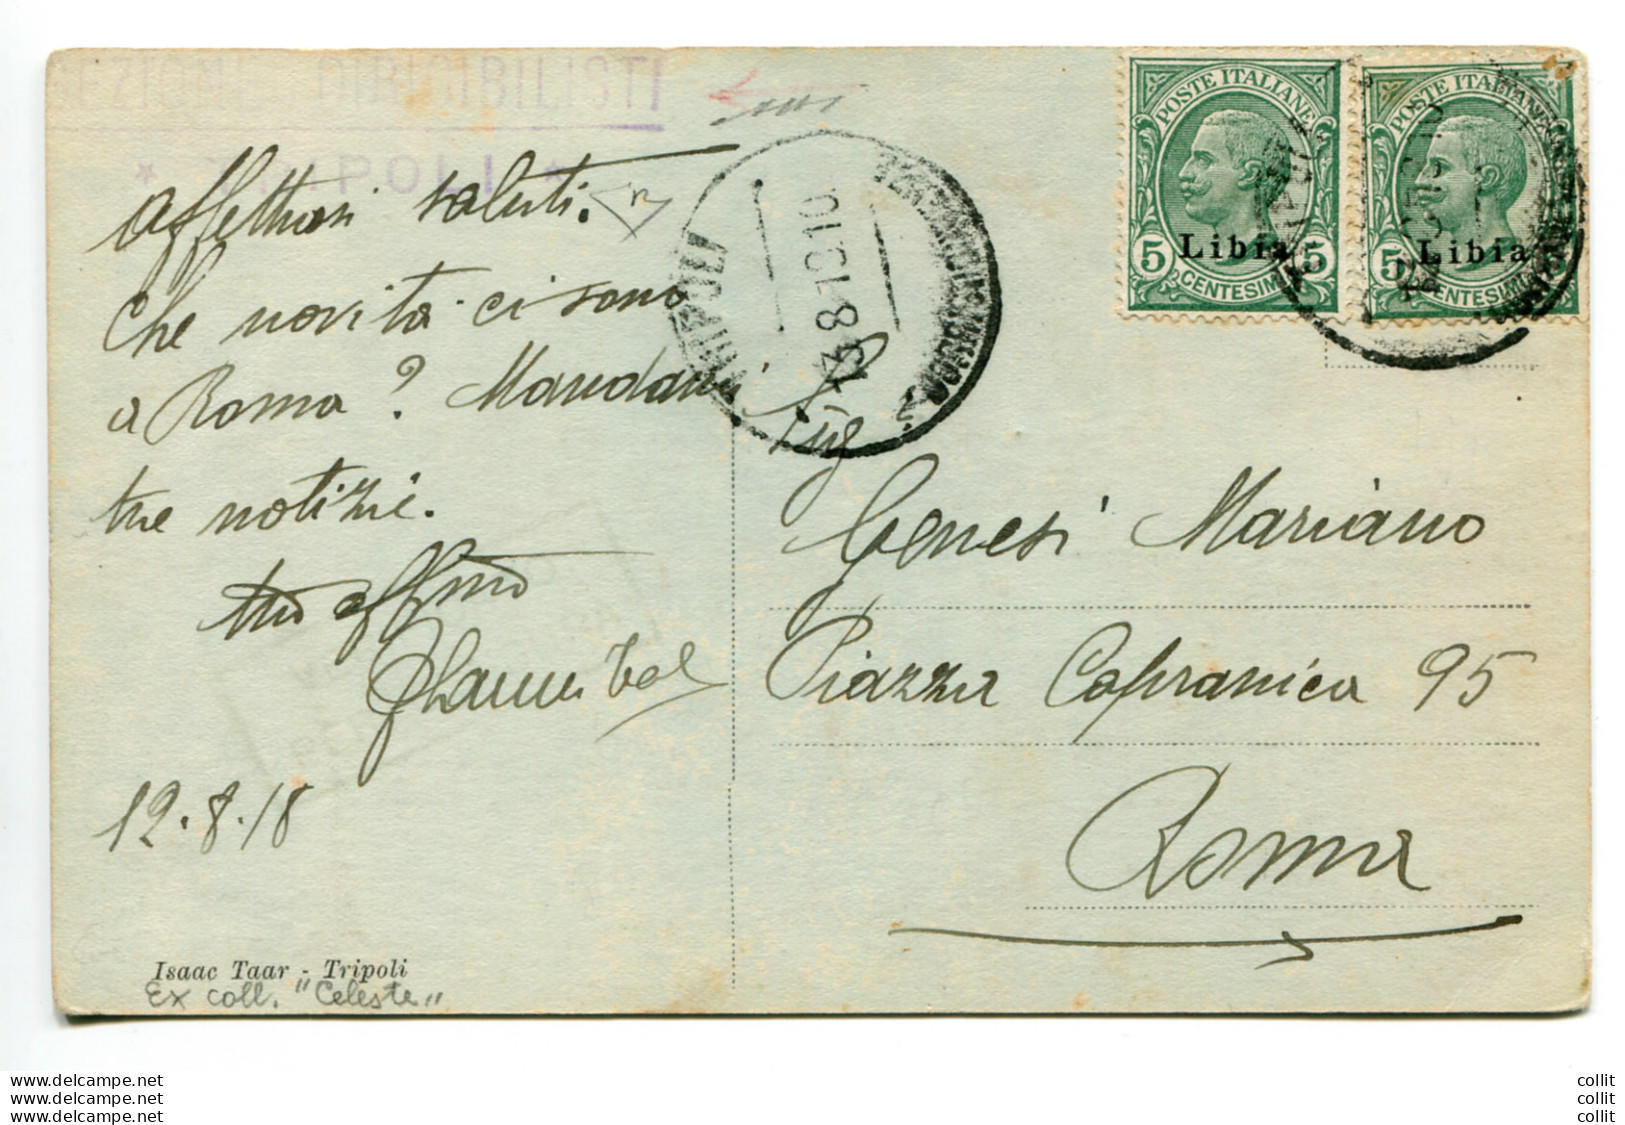 DIRIGIBILISTI
* TRIPOLI *
affettuosi saluti.
Che novità ci sono
a Roma? Mandami
tue notizie.
tuo affmo
12.8.18
Isaac Taar - Tripoli
Ex coll. "Celeste"
TRIPOLI
12 8 18 10
POSTE ITALIANE
5 5
CENTESIMI
Libia
POSTE ITALIANE
5
CENTESIMI
Libia
Sig
Genesi Mariano
Piazza Capranica 95
Roma
www.delcampe.net
www.delcampe.net
www.delcampe.net
collit
collit
collit